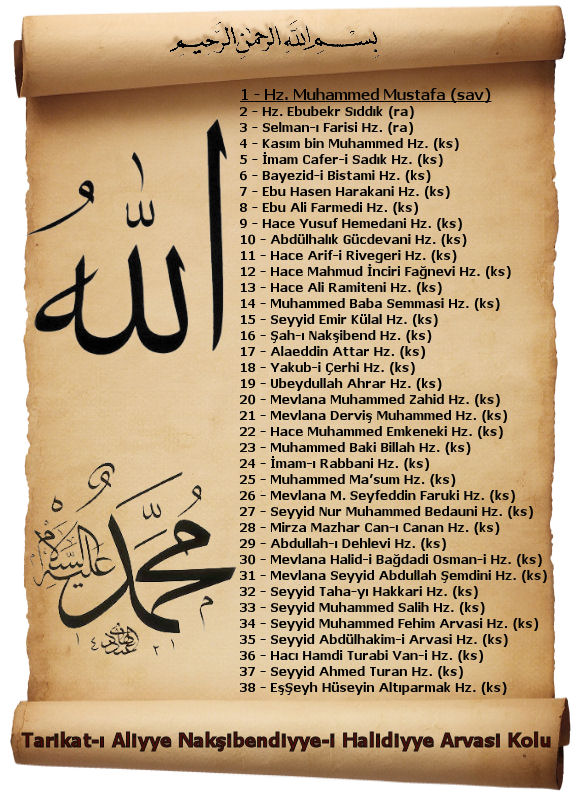 بسم الله الرحمن الرحيم
1 - Hz. Muhammed Mustafa (sav)
2 - Hz. Ebubekr Sıddık (ra)
3 - Selman-ı Farisi Hz. (ra)
4 - Kasım bin Muhammed Hz. (ks)
5 - İmam Cafer-i Sadık Hz. (ks)
6 - Bayezid-i Bistami Hz. (ks)
7 - Ebu Hasen Harakani Hz. (ks)
8 - Ebu Ali Farmedi Hz. (ks)
9 - Hace Yusuf Hemedani Hz. (ks)
10 - Abdülhalık Gücdevani Hz. (ks)
11 - Hace Arif-i Rivegeri Hz. (ks)
12 - Hace Mahmud İnciri Fağnevi Hz. (ks)
13 - Hace Ali Ramiteni Hz. (ks)
14 - Muhammed Baba Semmasi Hz. (ks)
15 - Seyyid Emir Külal Hz. (ks)
16 - Şah-ı Nakşibend Hz. (ks)
17 - Alaeddin Attar Hz. (ks)
18 - Yakub-i Çerhi Hz. (ks)
19 - Ubeydullah Ahrar Hz. (ks)
20 - Mevlana Muhammed Zahid Hz. (ks)
21 - Mevlana Derviş Muhammed Hz. (ks)
22 - Hace Muhammed Emkeneki Hz. (ks)
23 - Muhammed Baki Billah Hz. (ks)
24 - İmam-ı Rabbani Hz. (ks)
25 - Muhammed Ma'sum Hz. (ks)
26 - Mevlana M. Seyfeddin Faruki Hz. (ks)
27 - Seyyid Nur Muhammed Bedauni Hz. (ks)
28 - Mirza Mazhar Can-ı Canan Hz. (ks)
29 - Abdullah-ı Dehlevi Hz. (ks)
30 - Mevlana Halid-i Bağdadi Osman-i Hz. (ks)
31 - Mevlana Seyyid Abdullah Şemdini Hz. (ks)
32 - Seyyid Taha-yı Hakkari Hz. (ks)
33 - Seyyid Muhammed Salih Hz. (ks)
34 - Seyyid Muhammed Fehim Arvasi Hz. (ks)
35 - Seyyid Abdülhakim-i Arvasi Hz. (ks)
36 - Hacı Hamdi Turabi Van-i Hz. (ks)
37 - Seyyid Ahmed Turan Hz. (ks)
38 - EşŞeyh Hüseyin Altıparmak Hz. (ks)
الله
محمد
عليه السلام
Tarikat-ı Aliyye Nakşibendiyye-i Halidiyye Arvasi Kolu